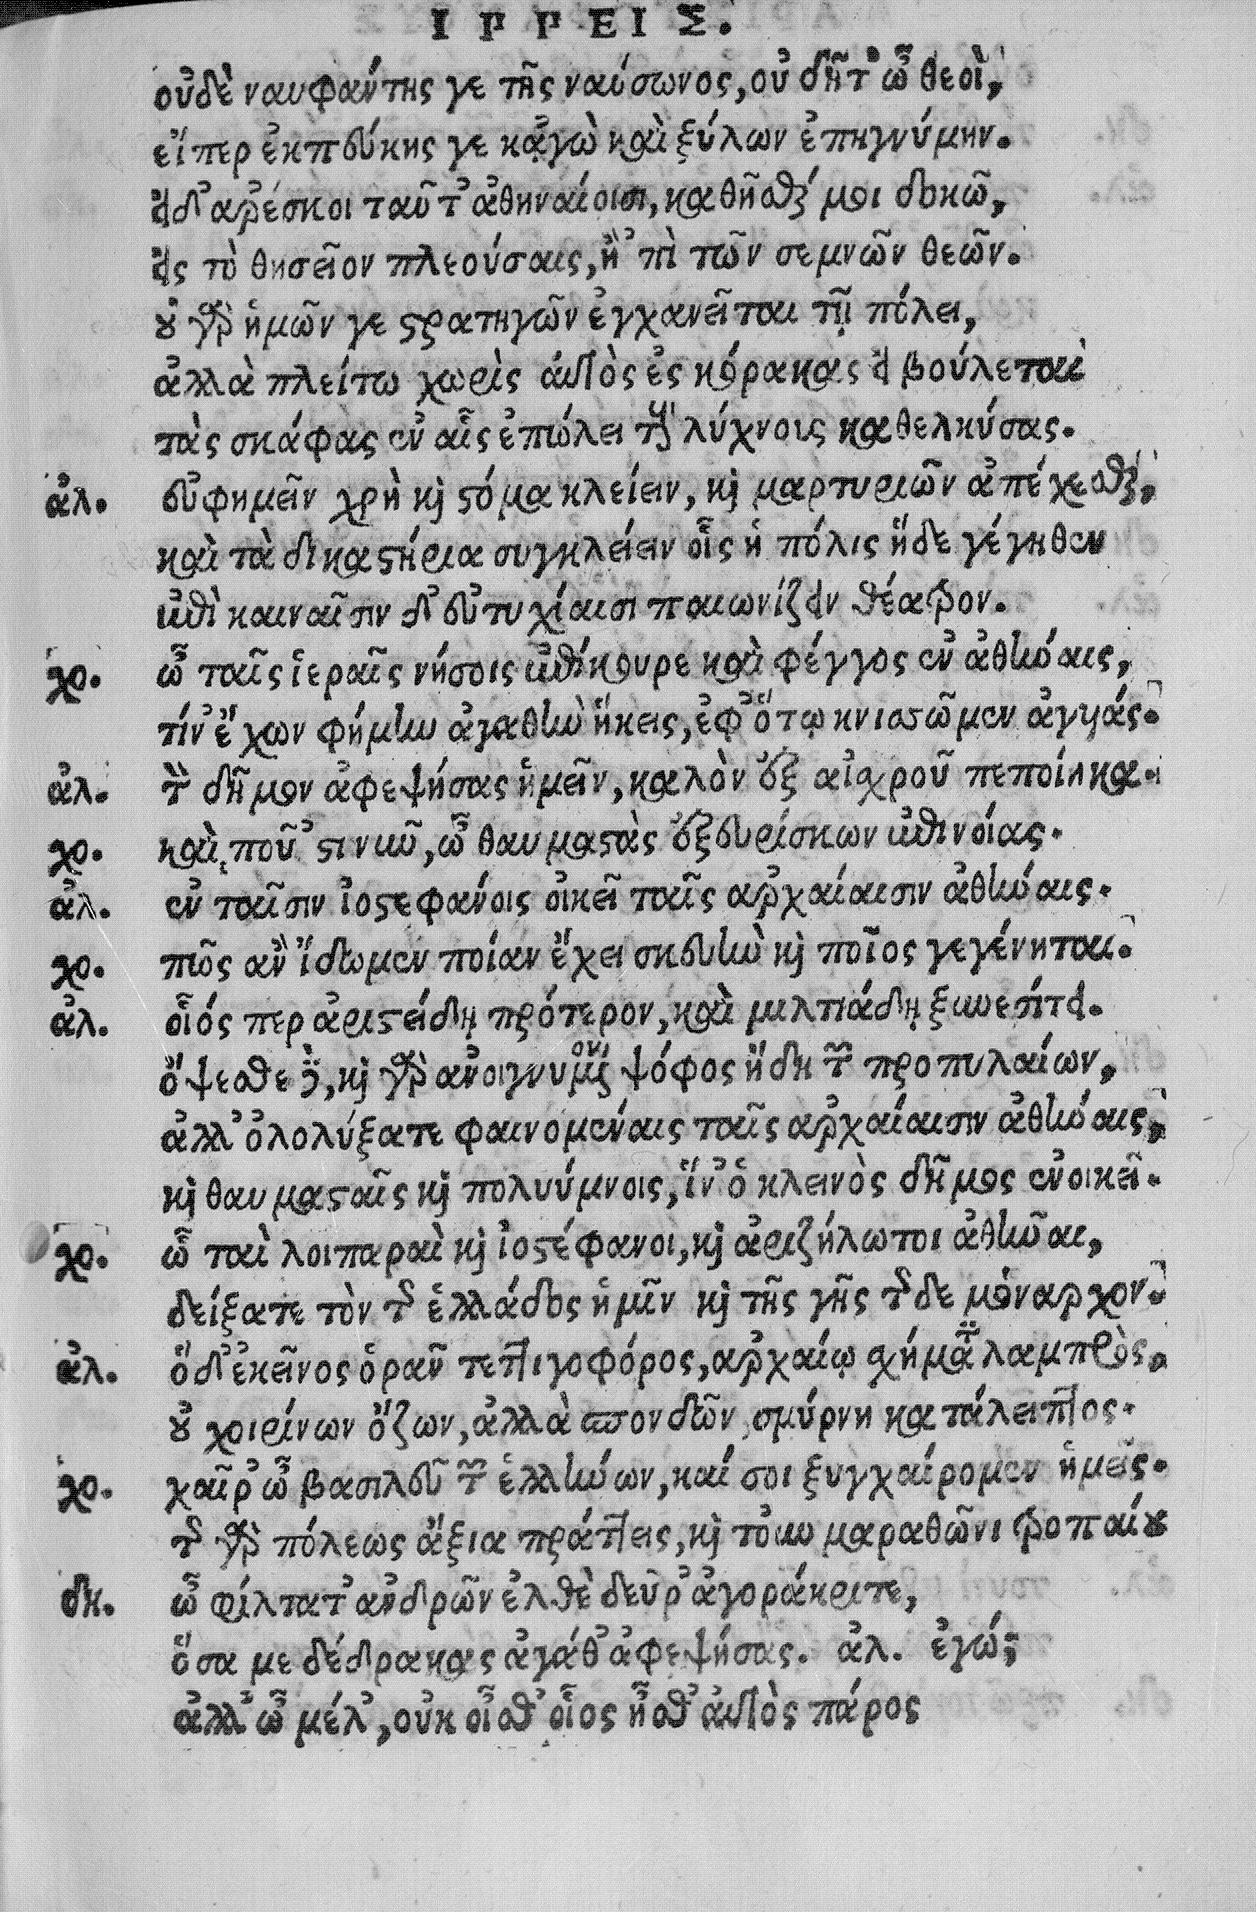 ΙΠΠΕΙΣ.
οὐδὲ ναυφάντης γε τῆς ναύσωνος, οὐ δῆτ' ὦ θεοὶ,
εἴπερ ἐκ πεύκης γε κᾀγὼ καὶ ξύλων ἐπηγνύμην.
εἰ δ' ἀρέσκοι ταῦτ' ἀθηναίοισι, καθῆσθαί μοι δοκῶ,
εἰς τὸ θησεῖον πλεούσαις, ἢ 'πὶ τῶν σεμνῶν θεῶν.
οὐ γὰρ ἡμῶν γε στρατηγῶν ἐγχανεῖται τῇ πόλει,
ἀλλὰ πλείτω χωρὶς αὐτὸς ἐς κόρακας εἰ βούλεται
τὰς σκάφας ἐν αἷς ἐπώλει τοὺς λύχνους καθελκύσας.
ἀλ. εὐφημεῖν χρὴ καὶ στόμα κλείειν, καὶ μαρτυριῶν ἀπέχεσθαι,
καὶ τὰ δικαστήρια συγκλείειν οἷς ἡ πόλις ἥδε γέγηθεν
ἐπὶ καιναῖσιν δ' εὐτυχίαισι παιωνίζειν θέατρον.
χο. ὦ ταῖς ἱεραῖς νήσοις ἐπίκουρε καὶ φέγγος ἐν ἀθήναις,
τίν' ἔχων φήμην ἀγαθὴν ἥκεις, ἐφ' ὅτῳ κνισῶμεν ἀγυιάς.
ἀλ. τὸν δῆμον ἀφεψήσας ἡμεῖν, καλὸν ἐξ αἰσχροῦ πεποίηκα.
χο. καὶ ποῦ 'στιν νῦν, ὦ θαυμαστὰς ἐξευρίσκων ἐπινοίας.
ἀλ. ἐν ταῖσιν ἰοστεφάνοις οἰκεῖ ταῖς ἀρχαίαισιν ἀθήναις.
χο. πῶς ἂν ἴδωμεν ποίαν ἔχει σκευὴν καὶ ποῖος γεγένηται.
ἀλ. οἷός περ ἀριστείδῃ πρότερον, καὶ μιλτιάδῃ ξυνεσίτει.
ὄψεσθε δὲ, καὶ γὰρ ἀνοιγνυμένων ψόφος ἤδη τῶν προπυλαίων,
ἀλλ' ὀλολύξατε φαινομέναις ταῖς ἀρχαίαισιν ἀθήναις,
καὶ θαυμασταῖς καὶ πολυύμνοις, ἵν' ὁ κλεινὸς δῆμος ἐνοικεῖ.
χο. ὦ ταὶ λοιπαραὶ καὶ ἰοστέφανοι, καὶ ἀριζήλωτοι ἀθῆναι,
δείξατε τὸν τῆς ἑλλάδος ἡμῖν καὶ τῆς γῆς τῆσδε μόναρχον.
ἀλ. ὅδ' ἐκεῖνος ὁρᾶν τεττιγοφόρος, ἀρχαίῳ σχήματι λαμπρὸς,
οὐ χοιρίνων ὄζων, ἀλλὰ σπονδῶν, σμύρνῃ κατάλειπτος.
χο. χαῖρ' ὦ βασιλεῦ τῶν ἑλλήνων, καί σοι ξυγχαίρομεν ἡμεῖς.
τῆς γὰρ πόλεως ἄξια πράττεις, καὶ τοῦ 'ν μαραθῶνι τροπαίου
δη. ὦ φίλτατ' ἀνδρῶν ἐλθὲ δεῦρ' ἀγοράκριτε,
ὅσα με δέδρακας ἀγάθ' ἀφεψήσας. ἀλ. ἐγώ;
ἀλλ' ὦ μέλ', οὐκ οἶσθ' οἷος ἦσθ' αὐτὸς πάρος